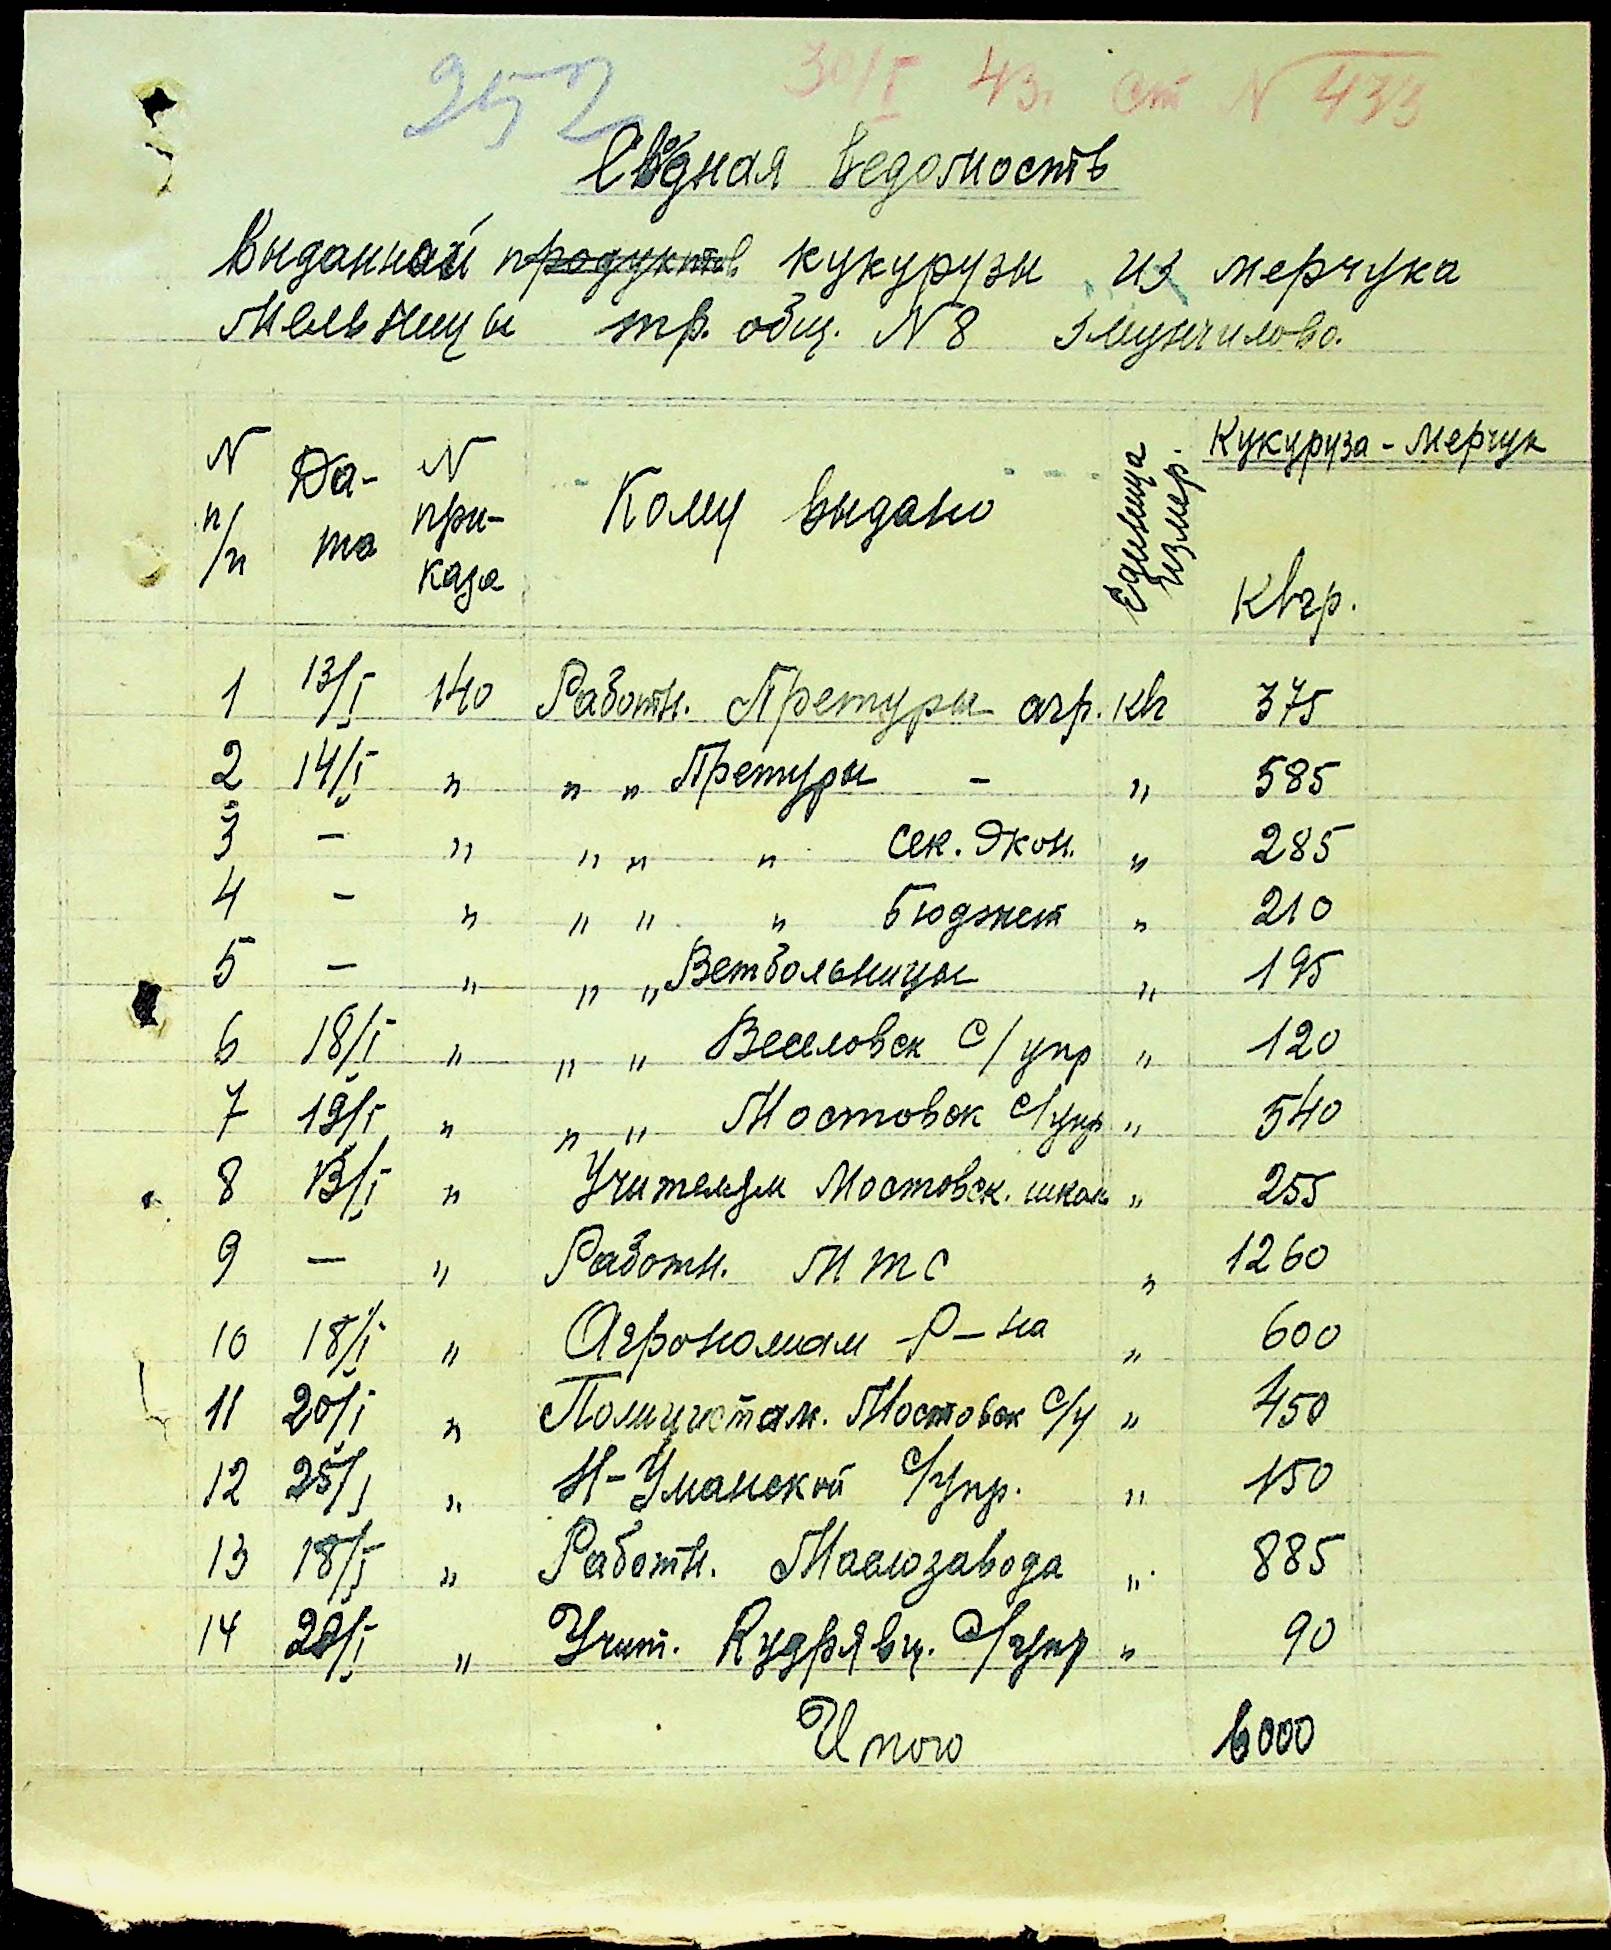 252
30/I 43. ст N 433
Сводная ведомость
Выданной продуктов кукурузы из мерчука
мельницы тр. общ. N 8
N п/п Да-та N при-каза Кому выдано Единица измер. Кукуруза - Мерчук
Квгр.
1 13/I 140 Работн. Претуры агр. кг 375
2 14/I " " " Претуры - " 585
3 - " " " " сек. Экон. " 285
4 - " " " " Бюджет " 210
5 - " " " Ветбольницы " 195
6 18/I " " " Веселовск с/упр " 120
7 19/I " " " Мостовск с/упр " 540
8 13/I " Учителям Мостовск. школ " 255
9 - " Работн. МТС " 1260
10 18/I " Агрономам Р-на " 600
11 20/I " Полицистам. Мостовск с/у " 450
12 25/I " Н-Уманской с/упр. " 150
13 18/I " Работн. Маслозавода " 885
14 28/I " Учит. Кудрявц. с/упр " 90
Итого 6000